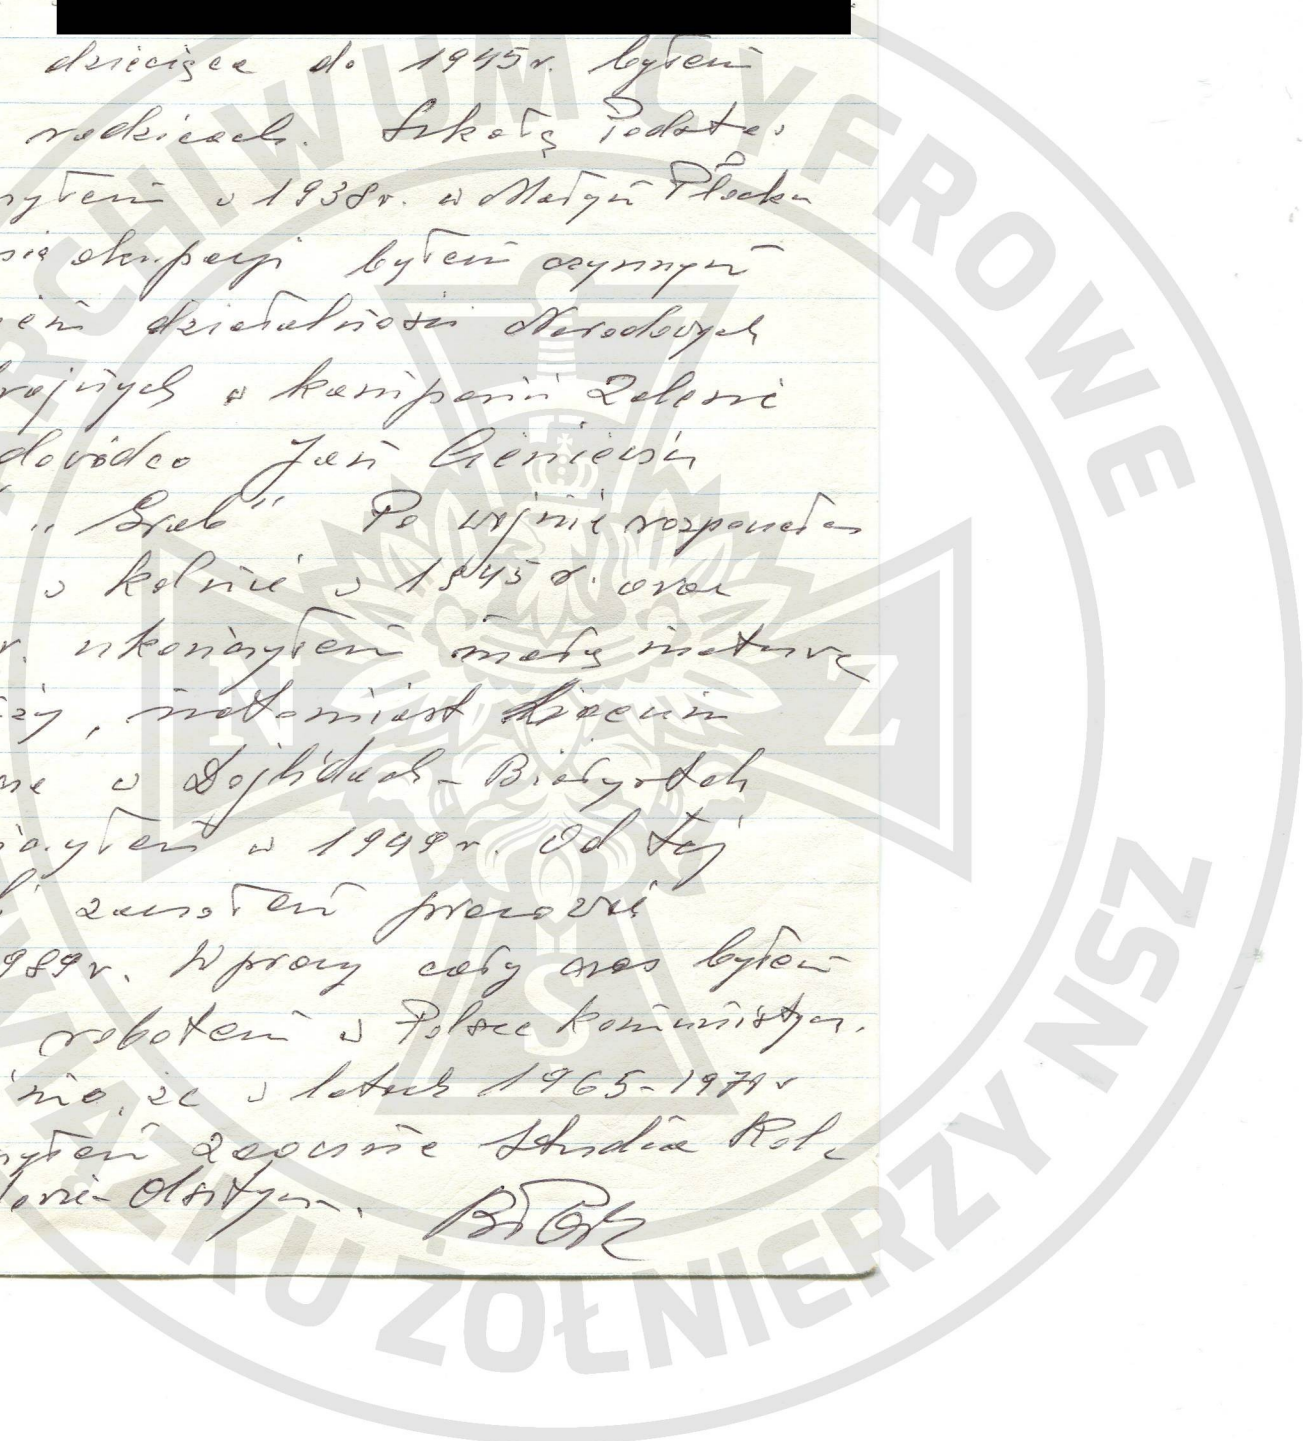 dziecięce do 1945r. byłem
rodzicach. Szkołę Podsta-
yłem w 1938r. w Małym Płocku
sie okupacji byłem czynnym
iem działalności Narodowych
rojnych w kompanii Zalesie
dowódca Jan
" Grab" Po wojnie
w Kolnie w 1945 r. oraz
r. ukończyłem małą maturę
ży, natomiast Liceum
ne w Dojlidach - Białystok
yłem w 1949r. Od tej
zacząłem
989r. W pracy cały czas byłem
robotem w Polsce Komunistycz.
że w latach 1965-1971r
yłem zaocznie Studia Rol
Olsztyn.
ARCHIWUM CYFROWE
ZWIĄZKU ŻOŁNIERZY NSZ
N S Z